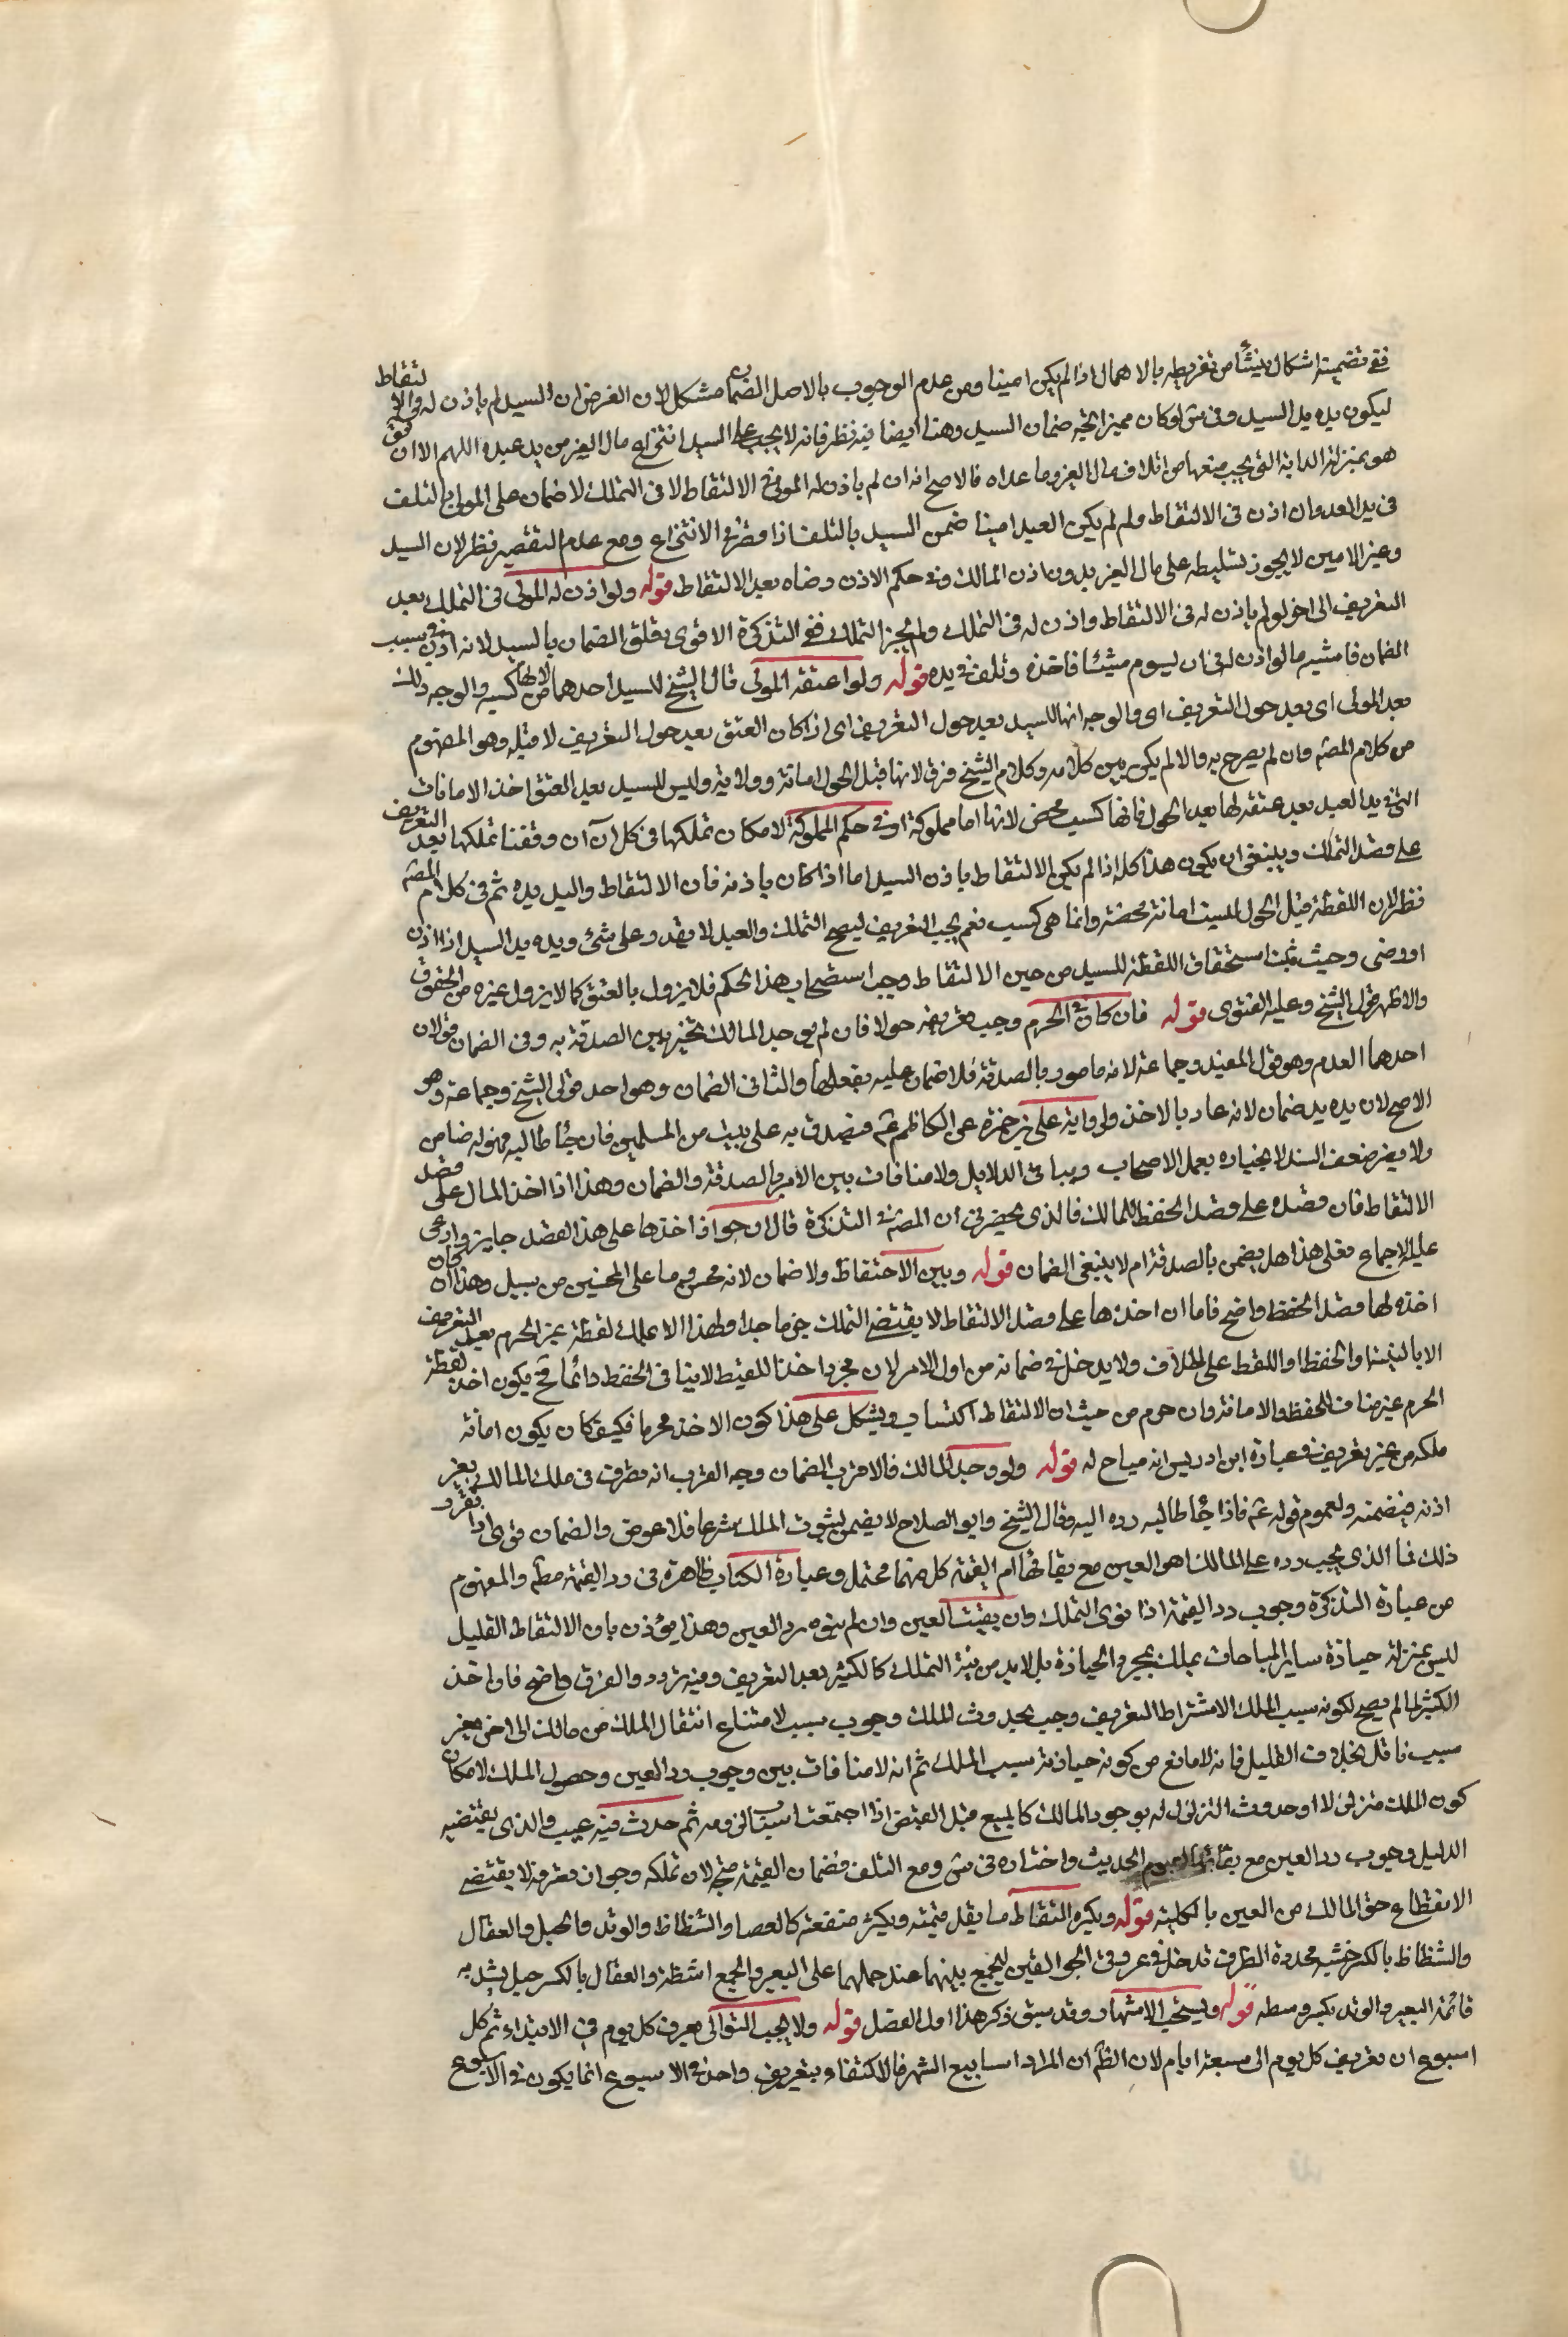 ففي تضمينه اشكال ينشأ من تفريطه بالاهمال اذا لم يكن امينا ومن عدم الوجوب بالاصل الضمان مشكل لان الفرض ان السيد لم ياذن له في الالتقاط
ليكون يده يد السيد وفي س لو كان مميزا اتجه ضمان السيد وهنا ايضا فيه نظر فانه لا يجب على السيد انتزاع مال الغير من يد عبده اللهم الا ان
هو بمنزلة الدابة التي يجب منعها من اتلاف مال الغير وما عداه فالاصح انه ان لم ياذن له المولى في الالتقاط لا في التملك لا ضمان على المولى بالتلف
في يد العبد وان اذن في الالتقاط ولم لم يكن العبد امينا ضمن السيد بالتلف اذا قصر في الانتزاع ومع عدم التقصير نظر لان السيد
وغير الامين لا يجوز تسليطه على مال الغير بدون اذن المالك وفي حكم الاذن رضاه بعد الالتقاط قوله ولو اذن له المولى في التملك بعد
التعريف الى اخر لو لم ياذن له في الالتقاط واذن له في التملك ولم يجز التملك ففي التذكرة الاقوى تعلق الضمان بالسيد لانه اذن في سبب
الضمان فاشبه ما لو اذن له في ان يسوم شيئا فاخذه وتلف في يده قوله ولو اعتقه المولى قال الشيخ للسيد اخذها لانها من كسبه والوجه ذلك
بعد المولى اى بعد حول التعريف اى والوجه انها للسيد بعد حول التعريف اى اذا كان العتق بعد حول التعريف لا قبله وهو المفهوم
من كلام المصه وان لم يصرح به والا لم يكن بين كلامه وكلام الشيخ فرق لانها قبل الحول امانة وولاية وليس للسيد بعد العتق اخذ الامانات
التي في يد العبد بعد عتقه لها بعد الحول فانها كسب محض لانها اما مملوكة او في حكم المملوكة لامكان تملكها في كل آن ان وقفنا تملكها بعد التعريف
على قصد التملك وينبغي ان يكون هذا كله اذا لم يكن الالتقاط باذن السيد اما اذا كان باذنه فان الالتقاط واليد يده ثم في كلام المصه
نظر لان اللقطة قبل الحول ليست امانة محضة وانما هي كسب نعم يجب التعريف ليصح التملك والعبد لا يقدر على شئ ويده يد السيد اذا اذن
او رضى وحيث ثبت استحقاق اللقطة للسيد من حين الالتقاط وجب استصحاب هذا الحكم فلا يزول بالعتق كما لا يزول غيره من الحقوق
والاظهر قول الشيخ وعليه الفتوى قوله فان كان في الحرم وجب تعريفه حولا فان لم يوجد المالك تخير بين الصدقة به وفي الضمان قولان
احدهما العدم وهو قول المفيد وجماعة لانه مامور بالصدقة فلا ضمان عليه بفعلها والثاني الضمان وهو احد قولي الشيخ وجماعة وهو
الاصح لان يده يد ضمان لانه عاد بالاخذ ولرواية على بن حمزة عن الكاظم عم فيصدق به على بيت من المسلمين فان جاء طالبه فهو له ضامن
ولا يضر ضعف السند لانجباره بعمل الاصحاب وبباقي الدلايل ولا منافات بين الامر بالصدقة والضمان وهذا اذا اخذ المال على قصد
الالتقاط فان قصده على قصد الحفظ للمالك فالذي يحضرني ان المصه في التذكرة قال ان جواز اخذها على هذا القصد جايز وادعى
عليه الاجماع فعلى هذا هل يضمن بالصدقة ام لا ينبغي الضمان قوله وبين الاحتفاظ ولا ضمان لانه محسن وما على المحسنين من سبيل وهذا ان كان
اخذه لها قصد الحفظ واضح فاما ان اخذها على قصد الالتقاط لا يقتضى التملك جزما جدا ولهذا الا علك لقطة غير الحرم بعد التعريف
الا بالنية والحفظ واللقط على خلاف ولا يدخل في ضمانه من اول الامر لان مجرد اخذ اللقيط لا ينافي الحفظ دائما فح يكون اخذ لقطة
الحرم غير مناف للحفظ والامانة وان حرم من حيث ان الالتقاط اكتساب ويشكل على هذا كون الاخذ محرما فكيف كان يكون امانة
ملكه من غير تعريف في عبارة ابن ادريس انه مباح له قوله ولو وجد المالك فالاقرب الضمان وجه القرب انه تصرف في ملك المالك بغير
اذنه فيضمنه ولعموم قوله عم فاذا جاء طالبه رده اليه وقال الشيخ وابو الصلاح لا يضمن لثبوت الملك شرعا فلا عوض والضمان قوي اذا تقرر
ذلك فما الذي يجب رده على المالك اهو العين مع بقائها ام القيمة كل منهما محتمل وعبارة الكتاب ظاهرة في رد القيمة مطم والمفهوم
من عبارة التذكرة وجوب رد القيمة اذا نوى التملك وان بقيت العين وان لم ينوه رد العين وهذا يؤذن بان الالتقاط القليل
ليس بمنزلة حيازة ساير المباحات يملك بمجرد الحيازة بل لا بد من نية التملك كالكثير بعد التعريف وفيه تردد والفرق واضح فان اخذ
الكثير لما لم يصح لكونه سبب الملك لاشتراط التعريف وجب لحدوث الملك وجوب سبب لامتناع انتقال الملك من مالك الى اخر بغير
سبب ناقل بخلاف القليل فانه لا مانع من كونه حيازته سبب الملك ثم انه لا منافات بين وجوب رد العين وحصول الملك لامكان
كون الملك متزلزلا او حدوث التزلزل له بوجود المالك كالمبيع قبل القبض اذا اجتمعت اسباب لزومه ثم حدث فيه عيب والذى يقتضيه
الدليل وجوب رد العين مع بقائها لعموم الحديث واختاره في س ومع التلف فضمان القيمة متجه لان تملكه وجواز تصرفه لا يقتضى
الانقطاع حق المالك من العين بالكلية قوله ويكره التقاط ما يقل قيمته ويكثر منفعته كالعصا والشظاظ والوتد والحبل والعقال
والشظاظ بالكسر خشبة محددة الطرف تدخل في عروتي الجوالقين ليجمع بينهما عند حملهما على البعير والجمع اشظة والعقال بالكسر حبل يشد به
قائمة البعير والوتد بكسر وسطه قوله ويستحب الاشهاد وقد سبق ذكر هذا اول الفصل قوله ولا يجب التوالى يعرف كل يوم في الابتداء ثم كل
اسبوع ان تعريف كل يوم الى سبعة ايام لان الظم ان المراد اسابيع الشهر فالاكتفاء بتعريف واحد في الاسبوع انما يكون في الاسبوع